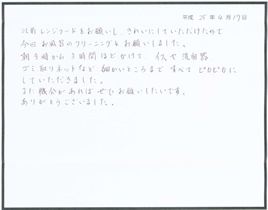 平成 25年 4月17日
以前レンジフードをお願いし、きれいにしていただけたので
今回お風呂のクリーニングをお願いしました。
朝9時から3時間ほどかけて、イスや洗面器
ゴミ取りネットなど 細かいところまで すべて ピカピカに
していただきました。
また機会があれば ぜひお願いしたいです。
ありがとうございました。